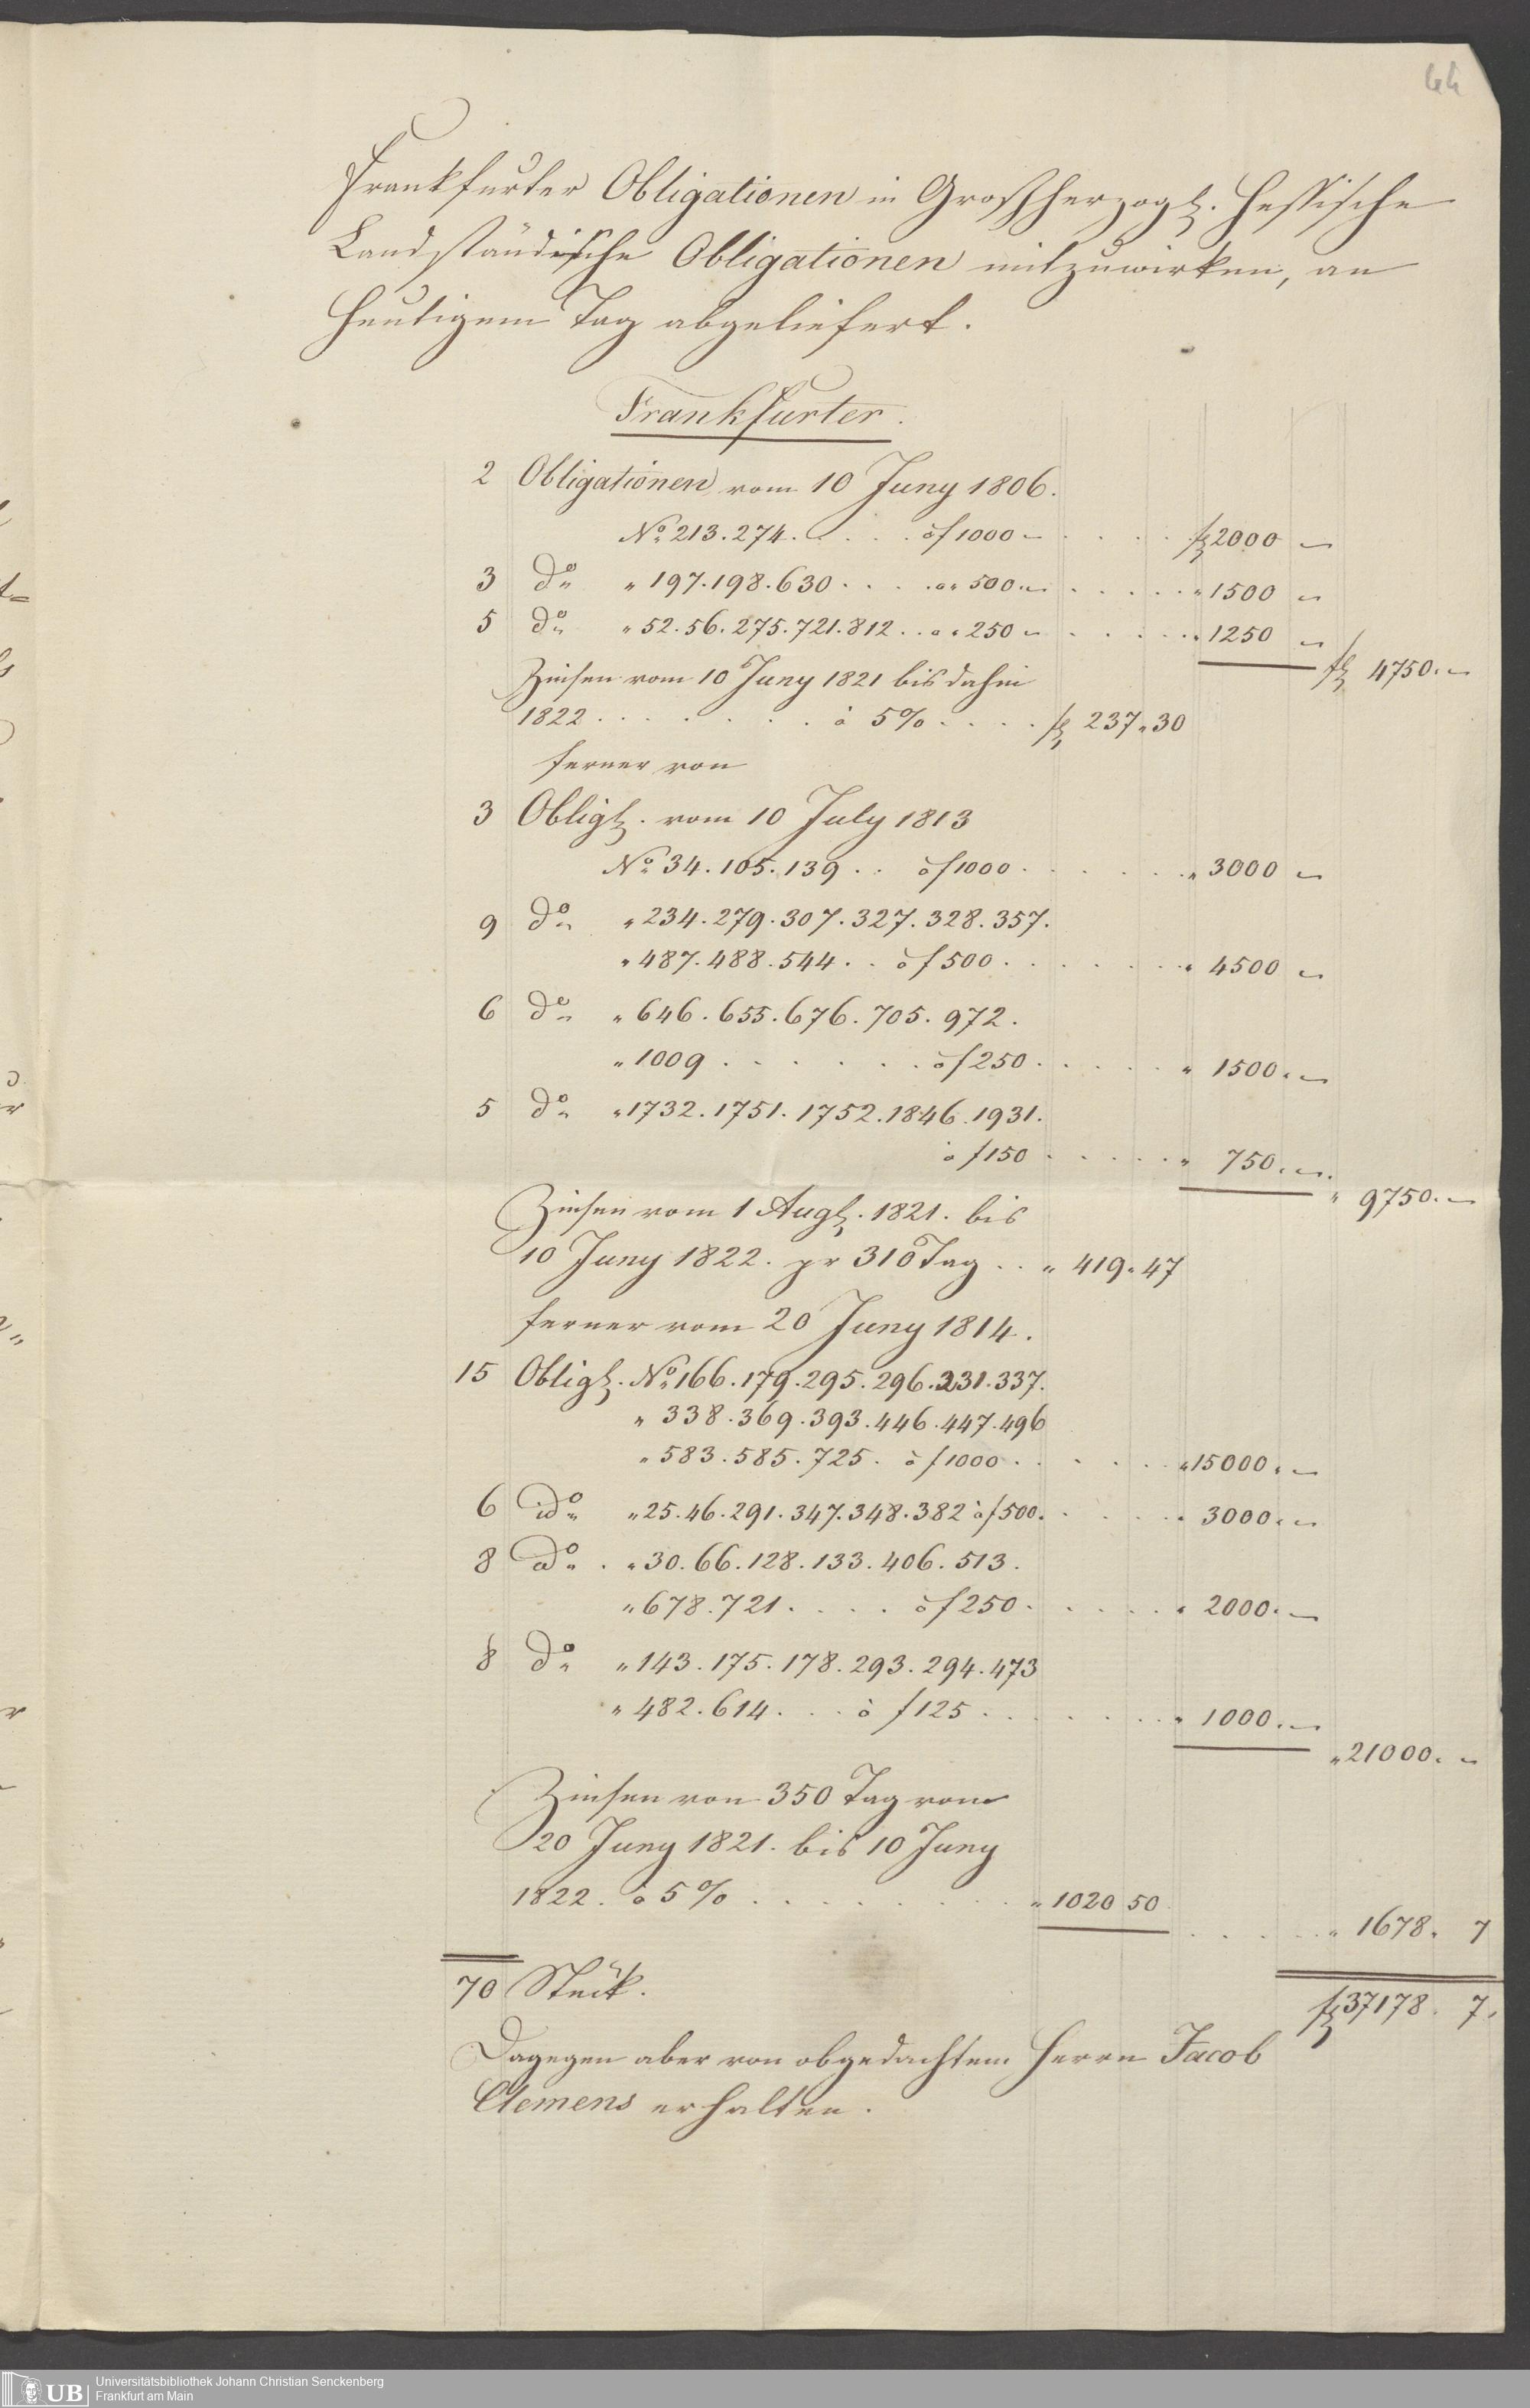 44
Frankfurter Obligationen in Großherzogl. Hessische
Landständische Obligationen mitzuwirken, an
heutigem Tag abgeliefert.
Frankfurter.
2 Obligationen vom 10 Juny 1806.
No. 213. 274. . . . . à f 1000 - . . . . fl 2000 -
3 do " 197. 198. 630 . . . . à " 500. - . . . . " 1500 -
5 do " 52. 56. 275. 721. 812 . . à " 250 - . . . . " 1250 -
fl 4750. -
Zinsen vom 10 Juny 1821 bis dahin
1822 . . . . . . . à 5% . . . . fl 237 " 30
ferner von
3 Oblig. vom 10 July 1813
No. 34. 105. 139 . . à f 1000 . . . . . " 3000 -
9 do " 234. 279. 307. 327. 328. 357.
" 487. 488. 544 . . à f 500 . . . . . . " 4500 -
6 do " 646. 655. 676. 705. 972.
" 1009 . . . . . . . à f 250 . . . . . " 1500. -
5 do " 1732. 1751. 1752. 1846. 1931.
à f 150 . . . . . " 750. -
" 9750. -
Zinsen vom 1 Aug. 1821. bis
10 Juny 1822. pr 310 Tag . . " 419 " 47
ferner vom 20 Juny 1814.
15 Oblig. No. 166. 179. 295. 296. 331. 337.
" 338. 369. 393. 446. 447. 496
" 583. 585. 725. à f 1000 . . . . . " 15000. -
6 do " 25. 46. 291. 347. 348. 382 à f 500. . . . . " 3000. -
8 do . " 30. 66. 128. 133. 406. 513.
" 678. 721. . . . . à f 250 . . . . . " 2000. -
8 do " 143. 175. 178. 293. 294. 473
" 482. 614. . . . à f 125 . . . . . . " 1000. -
" 21000. -
Zinsen von 350 Tag vom
20 Juny 1821. bis 10 Juny
1822. à 5% . . . . . . . . " 1020 50
. . . . . " 1678. 7
70 Stück.
fl 37178. 7.
Dagegen aber von obgedachtem Herrn Jacob
Clemens erhalten.
UB
Universitätsbibliothek Johann Christian Senckenberg
Frankfurt am Main